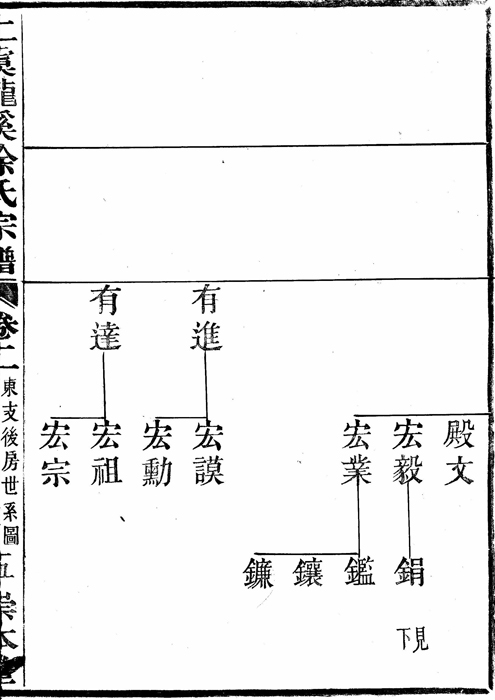 殿文
宏毅
鋗
見下
宏業
鑑
鑲
鐮
有進
宏謨
宏勳
有達
宏祖
宏宗
虞龍氏宗譜
卷
東支後房世系圖
五
崇本堂